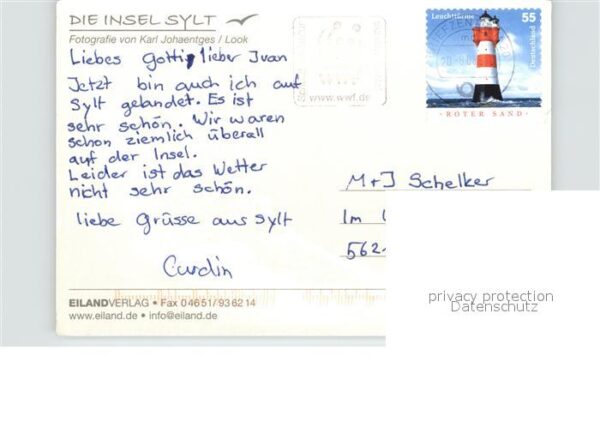 DIE INSEL SYLT
Fotografie von Karl Johaentges / Look
Liebes Gotti, lieber Ivan
Jetzt bin auch ich auf
Sylt gelandet. Es ist
sehr schön. Wir waren
schon ziemlich überall
auf der Insel.
Leider ist das Wetter
nicht sehr schön.
liebe Grüsse aus Sylt
Curdin
WWF
www.wwf.de
Leuchttürme 55
Deutschland
ROTER SAND
M+J Schelker
Im
562
EILANDVERLAG • Fax 0 46 51/ 93 62 14
www.eiland.de • info@eiland.de
privacy protection
Datenschutz